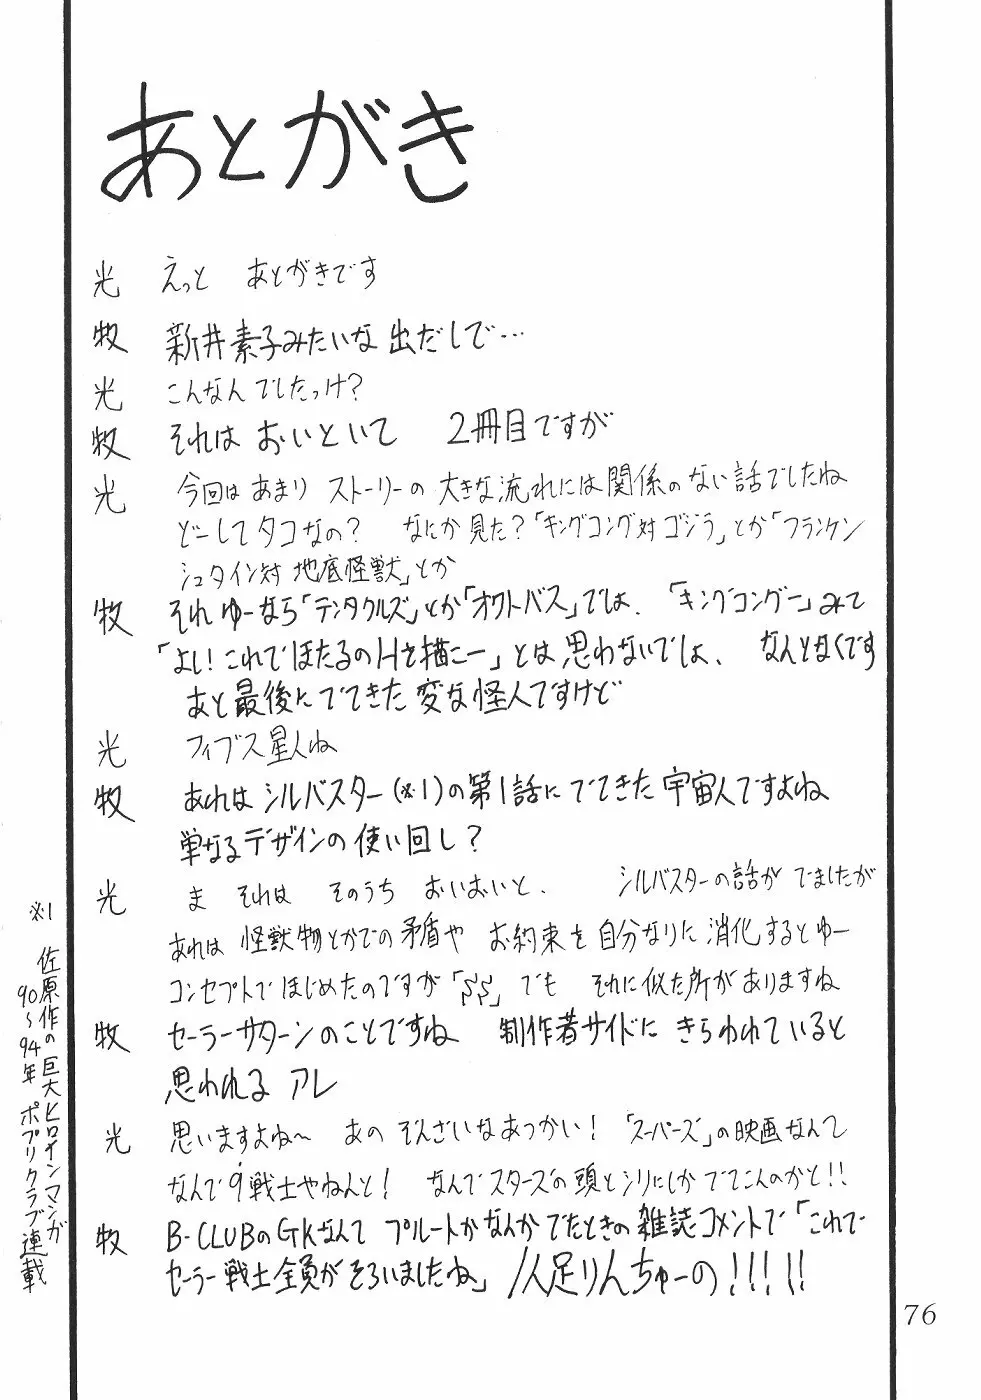 あとがき
光 えっと あとがきです
牧 新井素子みたいな出だしで…
光 こんなんでしたっけ?
牧 それは おいといて 2冊目ですが
光 今回はあまり ストーリーの大きな流れには関係のない話でしたね
どーしてタコなの? なにか見た?「キングコング対ゴジラ」とか「フランケン
シュタイン対 地底怪獣」とか
牧 それゆーなら「テンタクルズ」とか「オクトパス」では、「キングコングー」みて
「よし!これでほたるのHを描こー」とは思わないでしょ、 なんとなくです
あと最後にでてきた変な怪人ですけど
光 フィブス星人ね
牧 あれはシルバスター(※1)の第1話にでてきた宇宙人ですよね
単なるデザインの使い回し?
光 ま それは そのうち おいおいと、 シルバスターの話がでましたが
あれは怪獣物とかでの矛盾や お約束を自分なりに消化するとゆー
コンセプトではじめたのですが「SS」でも それに似た所がありますね
牧 セーラーサターンのことですね 制作者サイドにきらわれていると
思われる アレ
光 思いますよね〜 あの ぞんざいなあつかい!「スーパーズ」の映画なんて
なんで9戦士やねんと! なんでスターズの頭とシリにしかでてこんのかと!!
牧 B-CLUBのGKなんて プルートかなんかでたときの雑誌コメントで「これで
セーラー戦士全員がそろいましたね」1人足りんちゅーの!!!!!
※1 佐原作の巨大ヒロインマンガ
90〜94年 ポプリクラブ連載
76